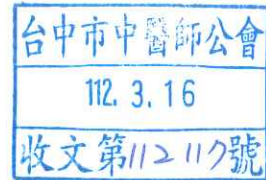 台中市中醫師公會
112. 3. 16
收文第112117號